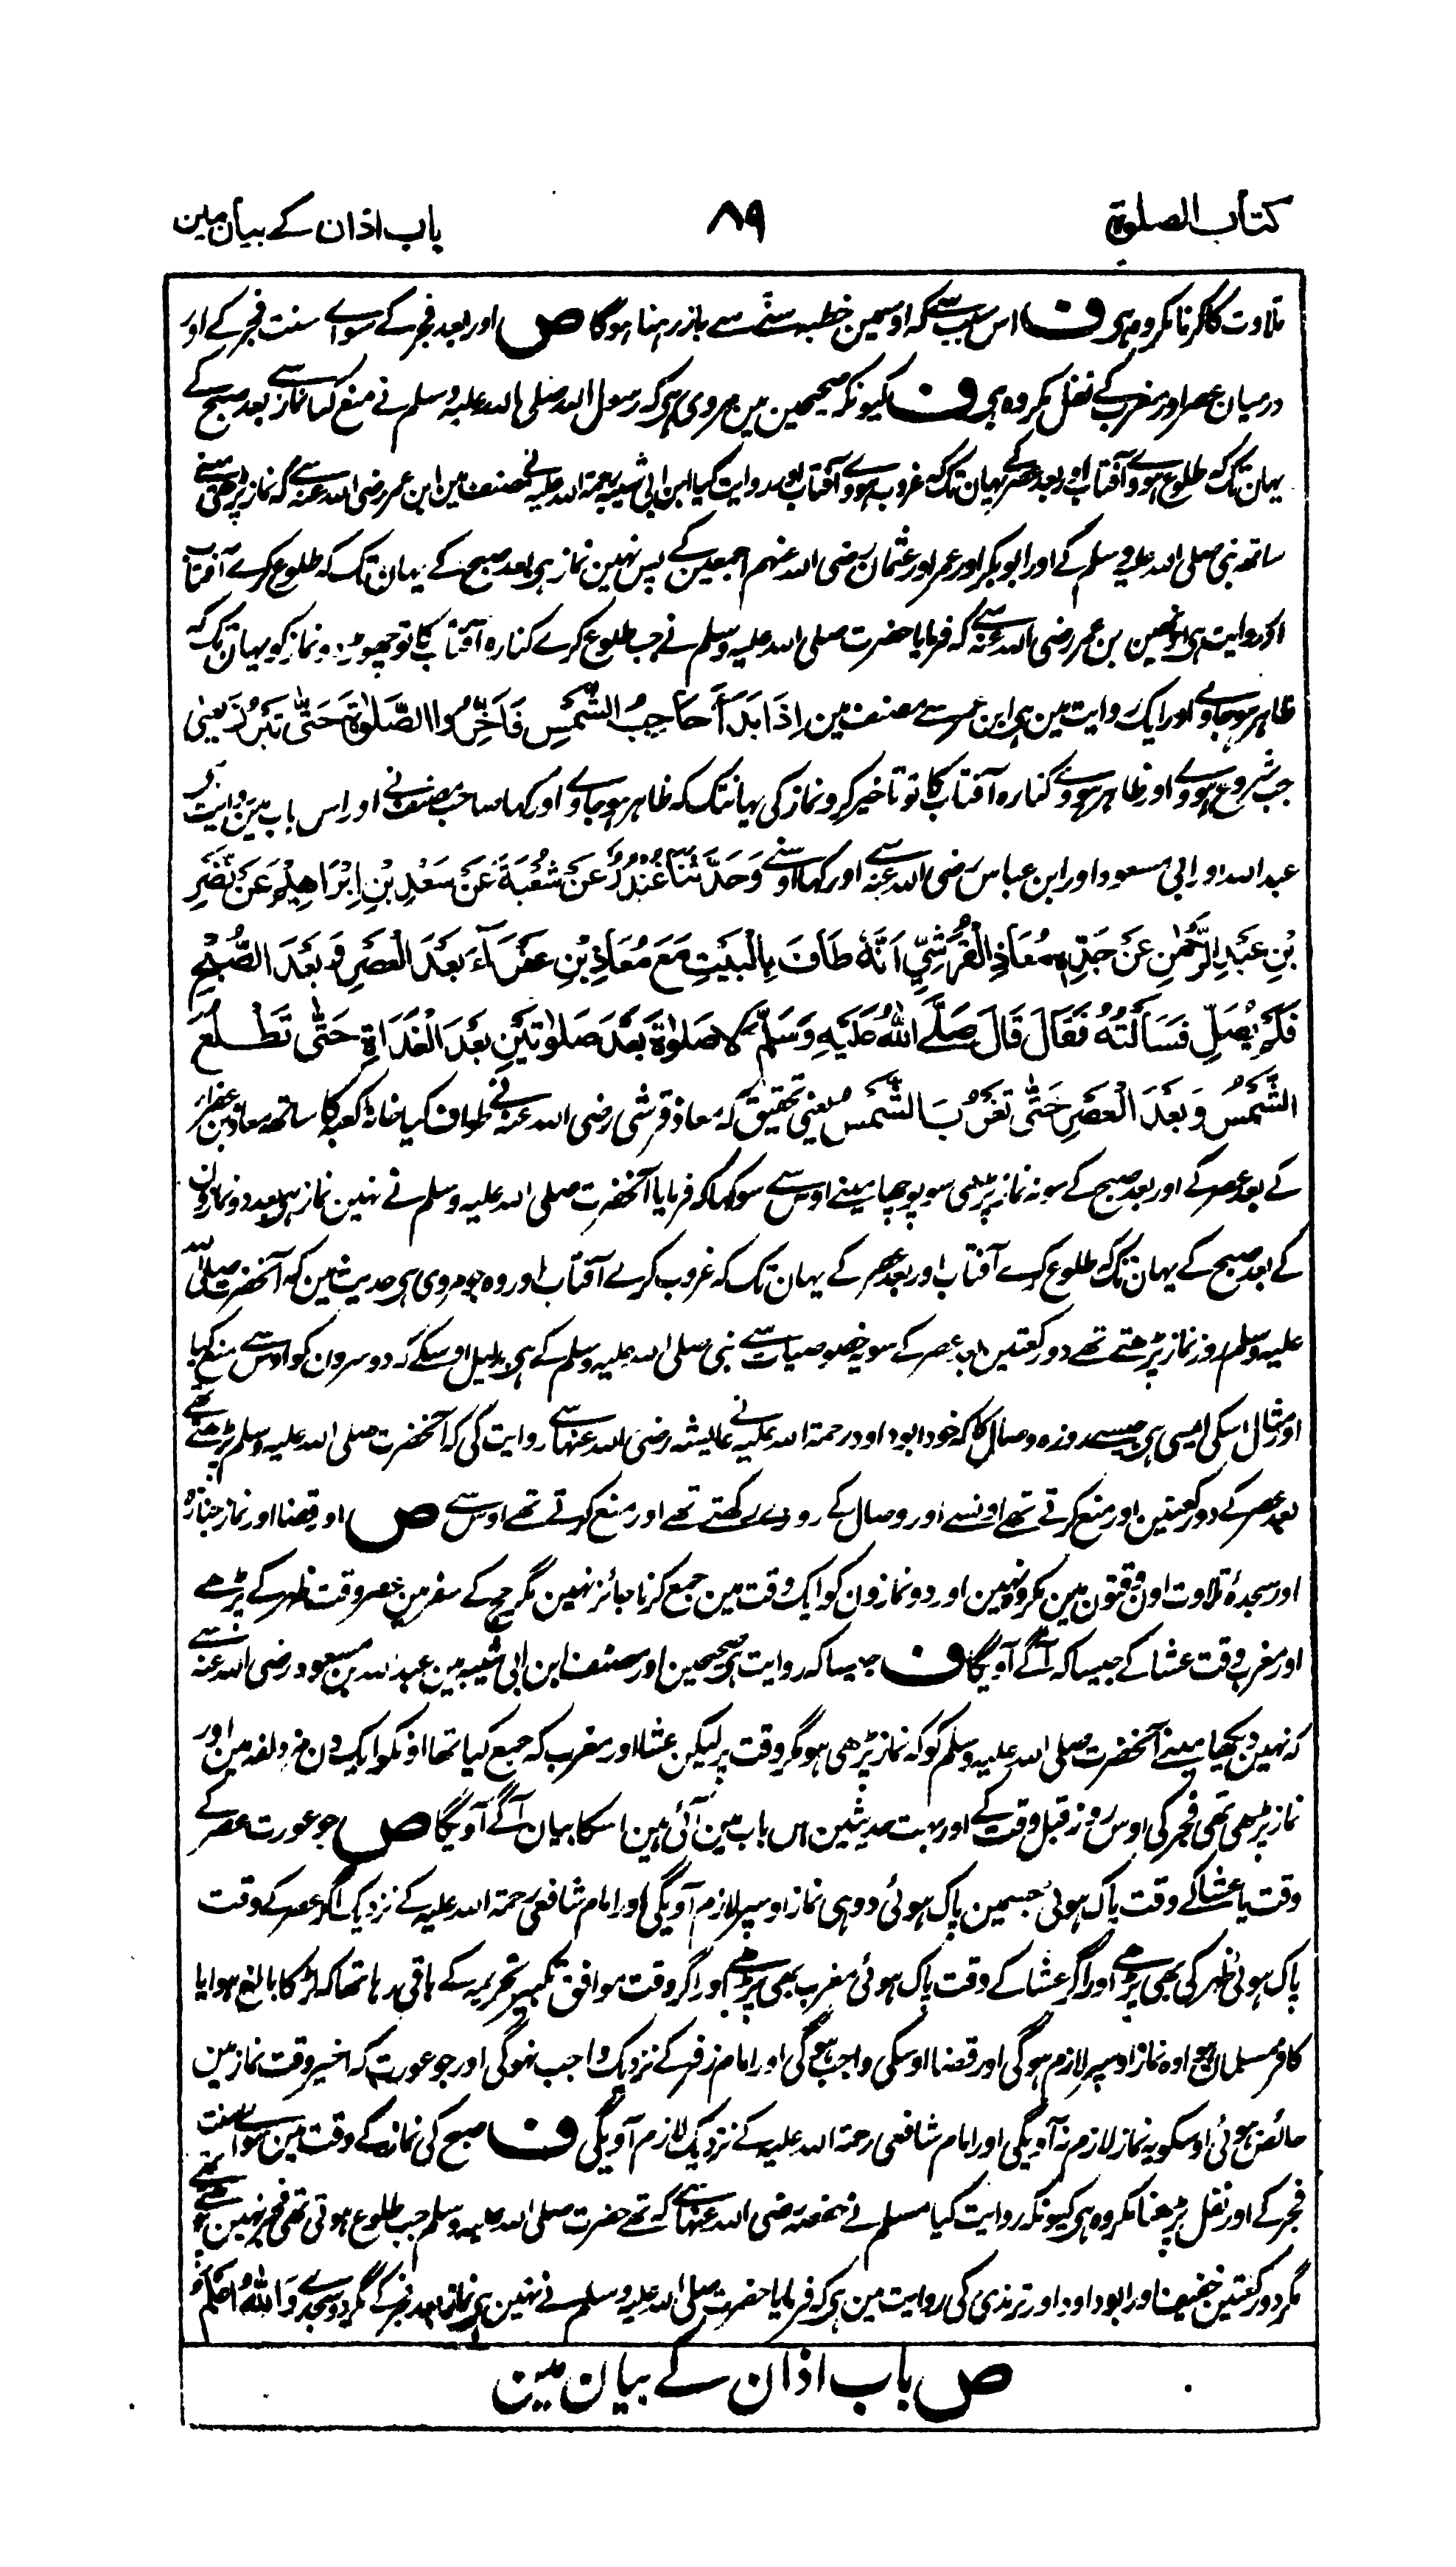 کتاب الصلوۃ
۸۹
باب اذان کے بیان مین
تلاوت کا کرنا مکروہ ہی ف اس سبب سے کہ اوسمین خطبہ سننے سے باز رہنا ہوگا ص اور بعد فجر کے سواے سنت فجر کے اور
درمیان عصر اور مغرب کے نفل مکروہ ہی ف کیونکہ صحیحین مین مروی ہی کہ رسول اللہ صلی اللہ علیہ وسلم نے منع کیا نماز سے بعد صبح کے
یہان تک کہ طلوع ہووے آفتاب اور بعد عصر کے یہان تک کہ غروب ہووے آفتاب اور روایت کیا ابن ابی شیبہ رحمۃ اللہ علیہ نے مصنف مین ابن عمر رضی اللہ عنہ سے کہ نماز پڑھی مینے
ساتھ نبی صلی اللہ علیہ وسلم کے اور ابوبکر اور عمر اور عثمان رضی اللہ عنہم اجمعین کے پس نہین نماز ہی بعد صبح کے یہان تک کہ طلوع کرے آفتاب
اور روایت ہی اونھین بن عمر رضی اللہ عنہ سے کہ فرمایا حضرت صلی اللہ علیہ وسلم نے جب طلوع کرے کنارہ آفتاب کا تو چھوڑ دو نماز کو یہان تک کہ
ظاہر ہو جاوے اور ایک روایت مین ہی ابن عمر سے مصنف مین اِذَا بَدَأَ حَاجِبُ الشَّمْسِ فَاَخِّرُوا الصَّلٰوۃَ حَتّٰی تَبْرُزَ یعنی
جب شروع ہووے اور ظاہر ہووے کنارہ آفتاب کا تو تاخیر کرو نماز کی یہانتک کہ ظاہر ہو جاوے اور کہا صاحب مصنف نے اور اس باب مین روایت ہی
عبد اللہ اور ابی مسعود اور ابن عباس رضی اللہ عنہ سے اور کہا اوسنے وَحَدَّثَنَا غُنْدُرٌ عَنْ شُعْبَۃَ عَنْ سَعْدِ بْنِ اِبْرَاھِیْمَ عَنْ نَّضْرِ
بْنِ عَبْدِ الرَّحْمٰنِ عَنْ جَدِّہٖ مُعَاذِ الْقُرَشِیِّ اَنَّہٗ طَافَ بِالْبَیْتِ مَعَ مُعَاذِ بْنِ عَفْرَآءَ بَعْدَ الْعَصْرِ وَبَعْدَ الصُّبْحِ
فَلَمْ یُصَلِّ فَسَأَلْتُہٗ فَقَالَ قَالَ صَلَّے اللّٰہُ عَلَیْہِ وَسَلَّمَ لَا صَلٰوۃَ بَعْدَ صَلٰوتَیْنِ بَعْدَ الْغَدَاۃِ حَتّٰی تَطْلُعَ
الشَّمْسُ وَبَعْدَ الْعَصْرِ حَتّٰی تَغْرُبَ الشَّمْسُ یعنی تحقیق کہ معاذ قرشی رضی اللہ عنہ نے طواف کیا خانہ کعبہ کا ساتھ معاذ بن عفراء
کے بعد عصر کے اور بعد صبح کے سو نہ نماز پڑھی سو پوچھا مینے اوس سے سو کہا کہ فرمایا آنحضرت صلی اللہ علیہ وسلم نے نہین نماز ہی بعد دو نمازون
کے بعد صبح کے یہان تک کہ طلوع کرے آفتاب اور بعد عصر کے یہان تک کہ غروب کرے آفتاب اور وہ جو مروی ہی حدیث مین کہ آنحضرت صلی اللہ
علیہ وسلم روز نماز پڑھتے تھے دو رکعتین بعد عصر کے سو یہ خصوصیات سے نبی صلی اللہ علیہ وسلم کے ہی بدلیل اوسکے کہ دوسرون کو اوس سے منع کیا
اور مثال اسکی ایسی ہی جیسے روزہ وصال کا کہ خود ابوداود رحمۃ اللہ علیہ نے عایشہ رضی اللہ عنہا سے روایت کی کہ آنحضرت صلی اللہ علیہ وسلم پڑھتے تھے
بعد عصر کے دو رکعتین اور منع کرتے تھے اونسے اور وصال کے روزے رکھتے تھے اور منع کرتے تھے اوس سے ص اور قضا اور نماز جنازہ
اور سجدہ تلاوت اون وقتون مین مکروہ نہین اور دو نمازون کو ایک وقت مین جمع کرنا جائز نہین مگر حج کے سفر مین عصر وقت ظہر کے پڑھے
اور مغرب وقت عشا کے جیسا کہ آگے آویگا ف جیسا کہ روایت ہی صحیحین اور مصنف ابن ابی شیبہ مین عبد اللہ بن مسعود رضی اللہ عنہ سے
کہ نہین دیکھا مینے آنحضرت صلی اللہ علیہ وسلم کو کہ نماز پڑھی ہو مگر وقت پر لیکن عشا اور مغرب کہ جمع کیا تھا اونکو ایک دن مزدلفہ مین اور
نماز پڑھی تھی فجر کی اوس روز قبل وقت کے اور بہت حدیثین اس باب مین آئی ہین اسکا بیان آگے آویگا ص جو عورت عصر کے
وقت یا عشا کے وقت پاک ہوئی جسمین پاک ہوئی وہی نماز اوسپر لازم آویگی اور امام شافعی رحمۃ اللہ علیہ کے نزدیک اگر عصر کے وقت
پاک ہوئی ظہر کی بھی پڑھے اور اگر عشا کے وقت پاک ہوئی مغرب بھی پڑھے اور اگر وقت موافق تکبیر تحریمہ کے باقی رہا تھا کہ لڑکا بالغ ہوا یا
کافر مسلمان ہوا وہ نماز اوسپر لازم ہوگی اور قضا اوسکی واجب ہوگی اور امام زفر کے نزدیک واجب نہوگی اور جو عورت کہ اخیر وقت نماز مین
حائض ہوئی اوسکو یہ نماز لازم نہ آویگی اور امام شافعی رحمۃ اللہ علیہ کے نزدیک لازم آویگی ف صبح کی نماز کے وقت مین سواے سنت
فجر کے اور نفل پڑھنا مکروہ ہی کیونکہ روایت کیا مسلم نے حفصہ رضی اللہ عنہا سے کہ تھے حضرت صلی اللہ علیہ وسلم جب طلوع ہوتی تھی فجر نہین پڑھتے تھے
مگر دو رکعتین خفیف اور ابوداود اور ترمذی کی روایت مین ہی کہ فرمایا حضرت صلی اللہ علیہ وسلم نے نہین ہی نماز بعد فجر کے مگر دو سجدے وَاللّٰہُ اَعْلَمُ
ص باب اذان کے بیان مین